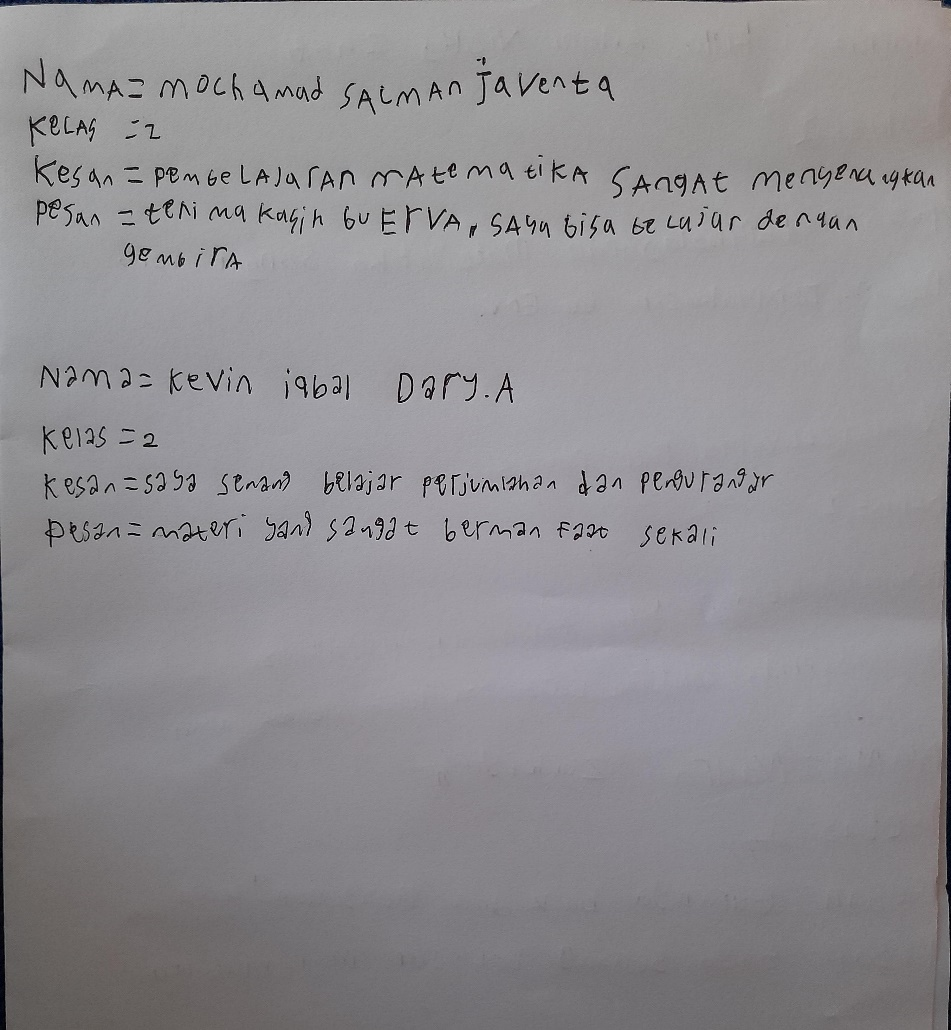 Nama = mochamad SALMAN javenta
KELAS = 2
Kesan = pembeLAJaran mAtematikA SAngAt menyenangkan
Pesan = terima kasih bu ERVA, SAya bisa belajar dengan
gembirA
Nama = Kevin iqbal Dary.A
Kelas = 2
kesan = saya senang belajar perjumlahan dan pengurangan
pesan = materi yang sangat bermanfaat sekali